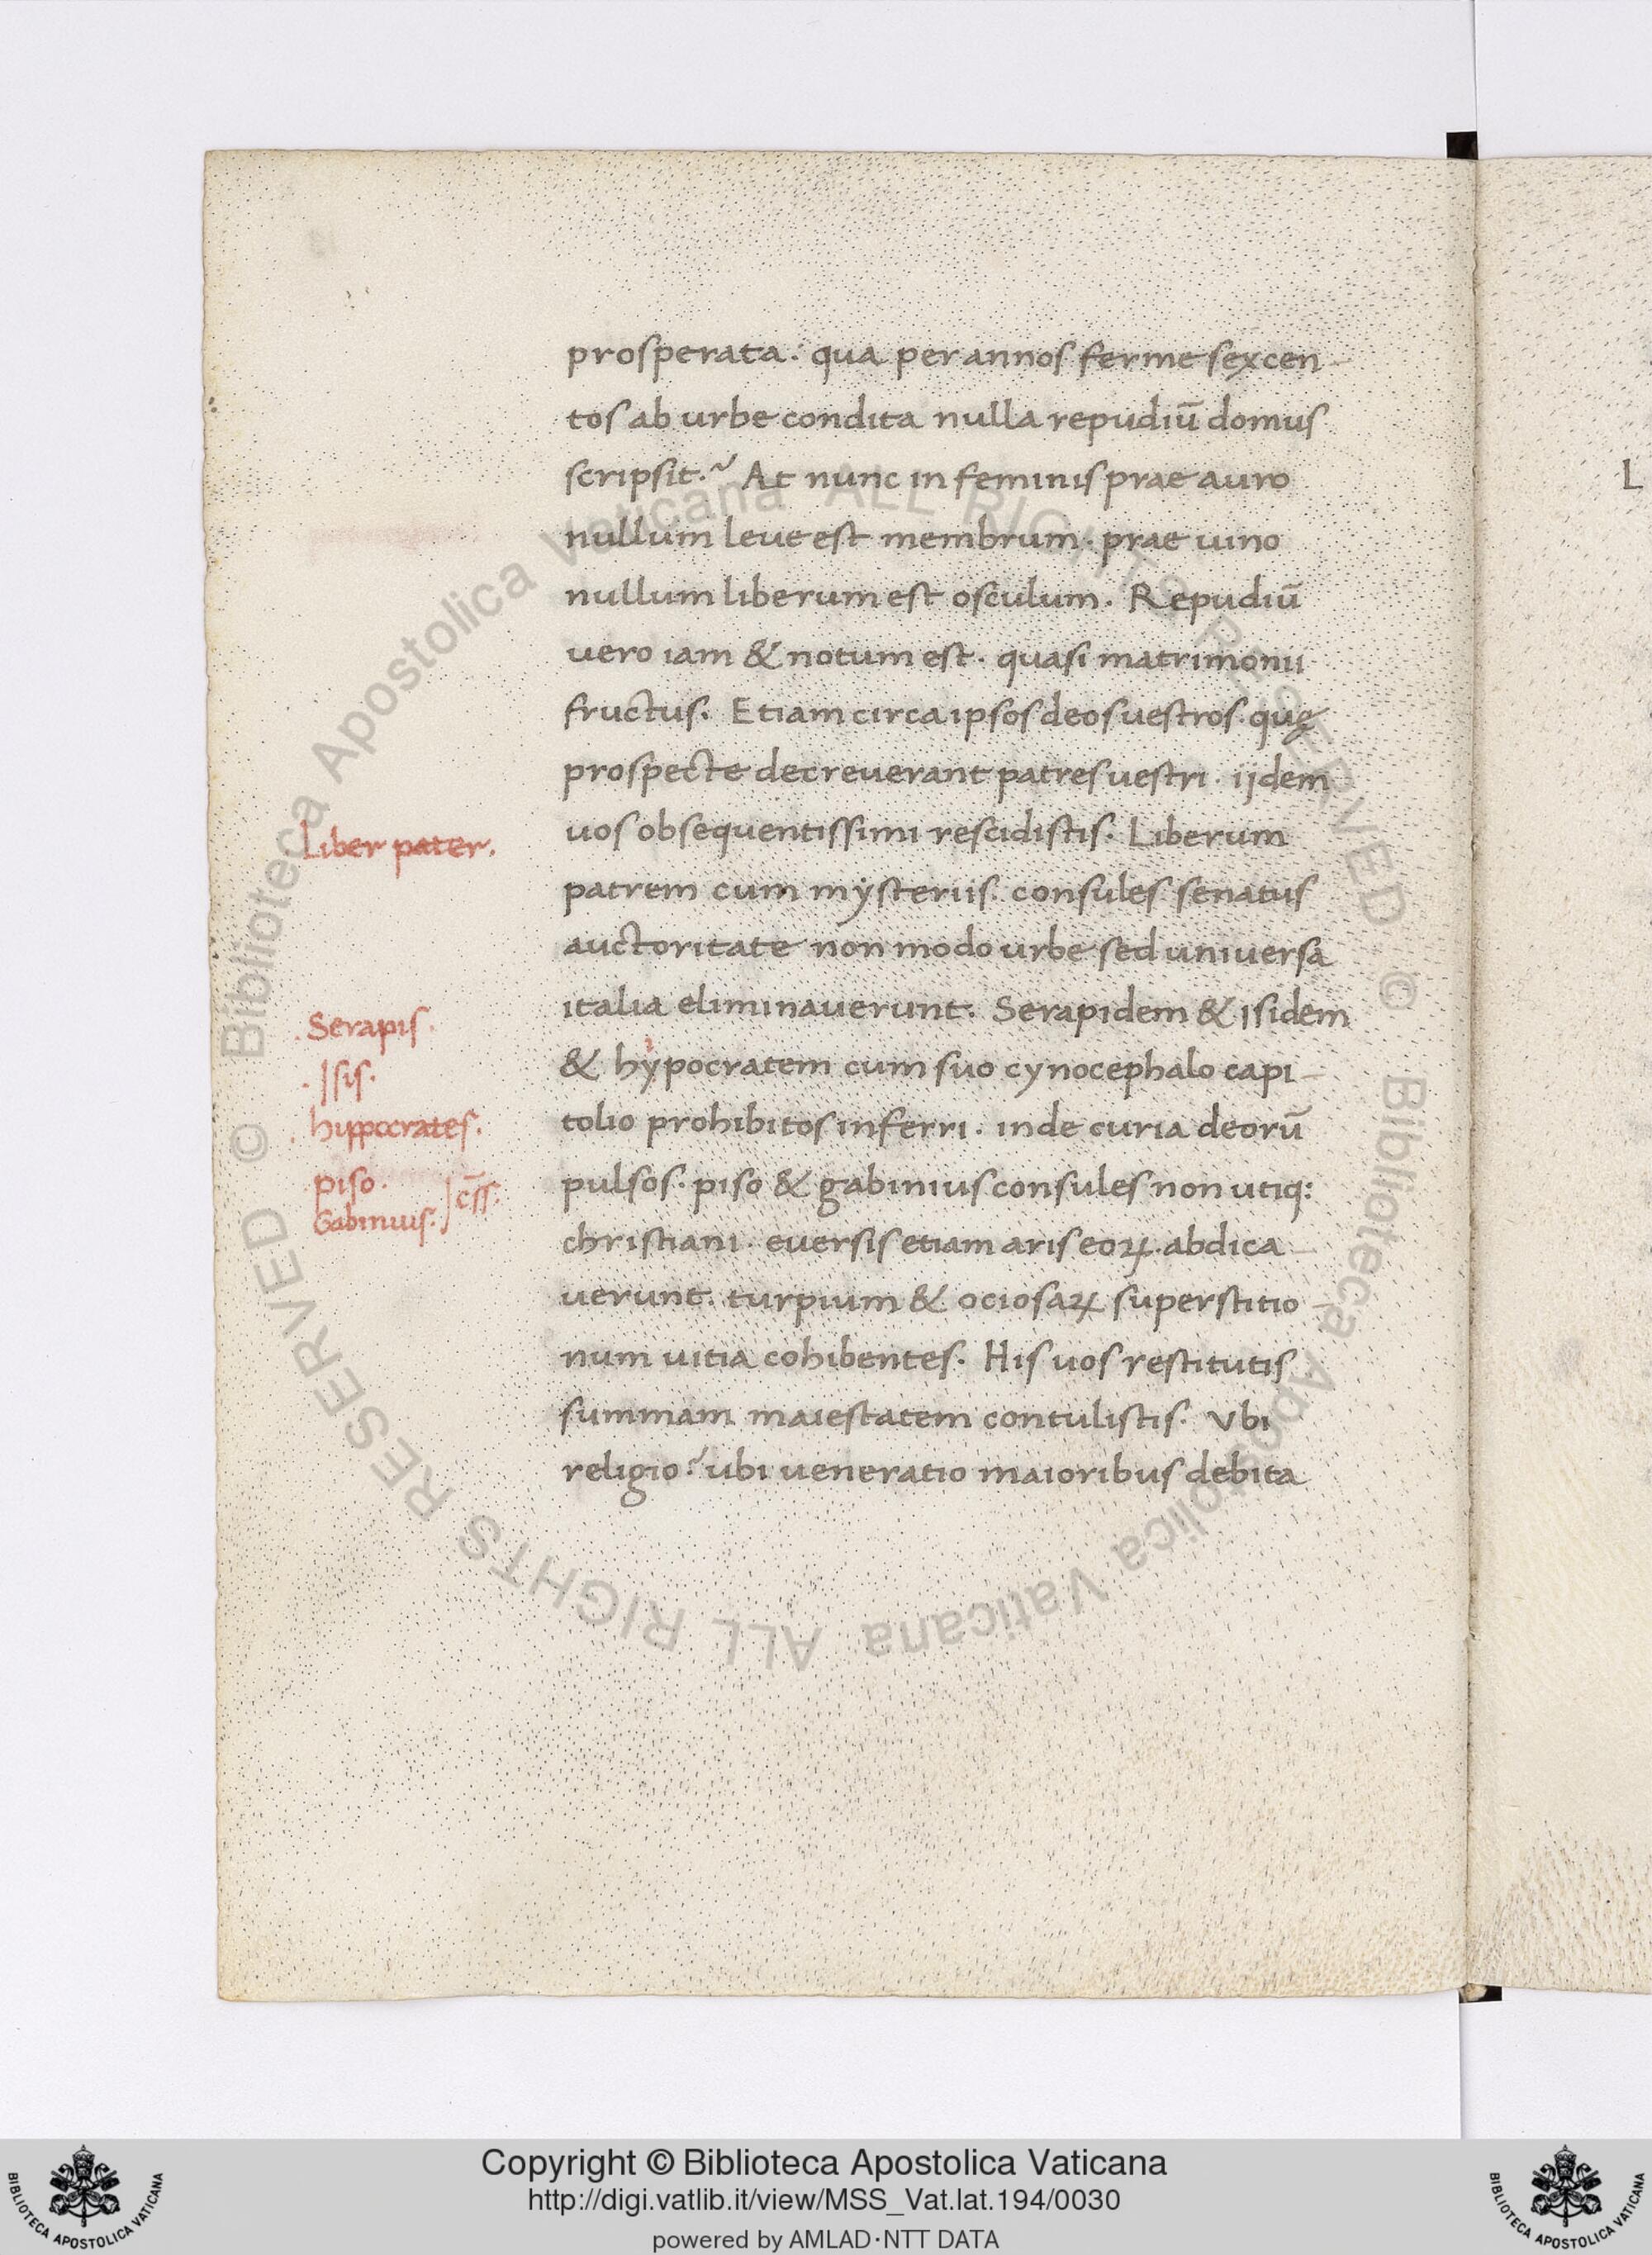 prosperata. qua per annos ferme sexcen
tos ab urbe condita nulla repudiū domus
scripsit.~ At nunc in feminis prae auro
nullum leue est membrum. prae uino
nullum liberum est osculum. Repudiū
uero iam & notum est. quasi matrimonii
fructus. Etiam circa ipsos deos uestros. quę
prospecte decreuerant patres uestri. ijdem
Liber pater.
uos obsequentissimi rescidistis. Liberum
patrem cum mẏsteriis. consules senatus
auctoritate non modo urbe sed uniuersa
italia eliminauerunt. Serapidem & Isidem
Serapis.
Isis.
& hẏpocratem cum suo cynocephalo capi
hippocrates.
tolio prohibitos inferri. inde curia deorū
piso.
Gabinius. c̄ss.
pulsos. piso & gabinius consules non utiq:
christiani. euersis etiam aris eoꝝ. abdica
uerunt. turpium & ociosaꝝ superstitio
num uitia cohibentes. His uos restitutis
summam maiestatem contulistis. Vbi
religio? ubi ueneratio maioribus debita
L
© Biblioteca Apostolica Vaticana ALL RIGHTS RESERVED © Biblioteca Apostolica Vaticana ALL RIGHTS RESERVED
Copyright © Biblioteca Apostolica Vaticana
http://digi.vatlib.it/view/MSS_Vat.lat.194/0030
powered by AMLAD·NTT DATA
BIBLIOTECA APOSTOLICA VATICANA
BIBLIOTECA APOSTOLICA VATICANA